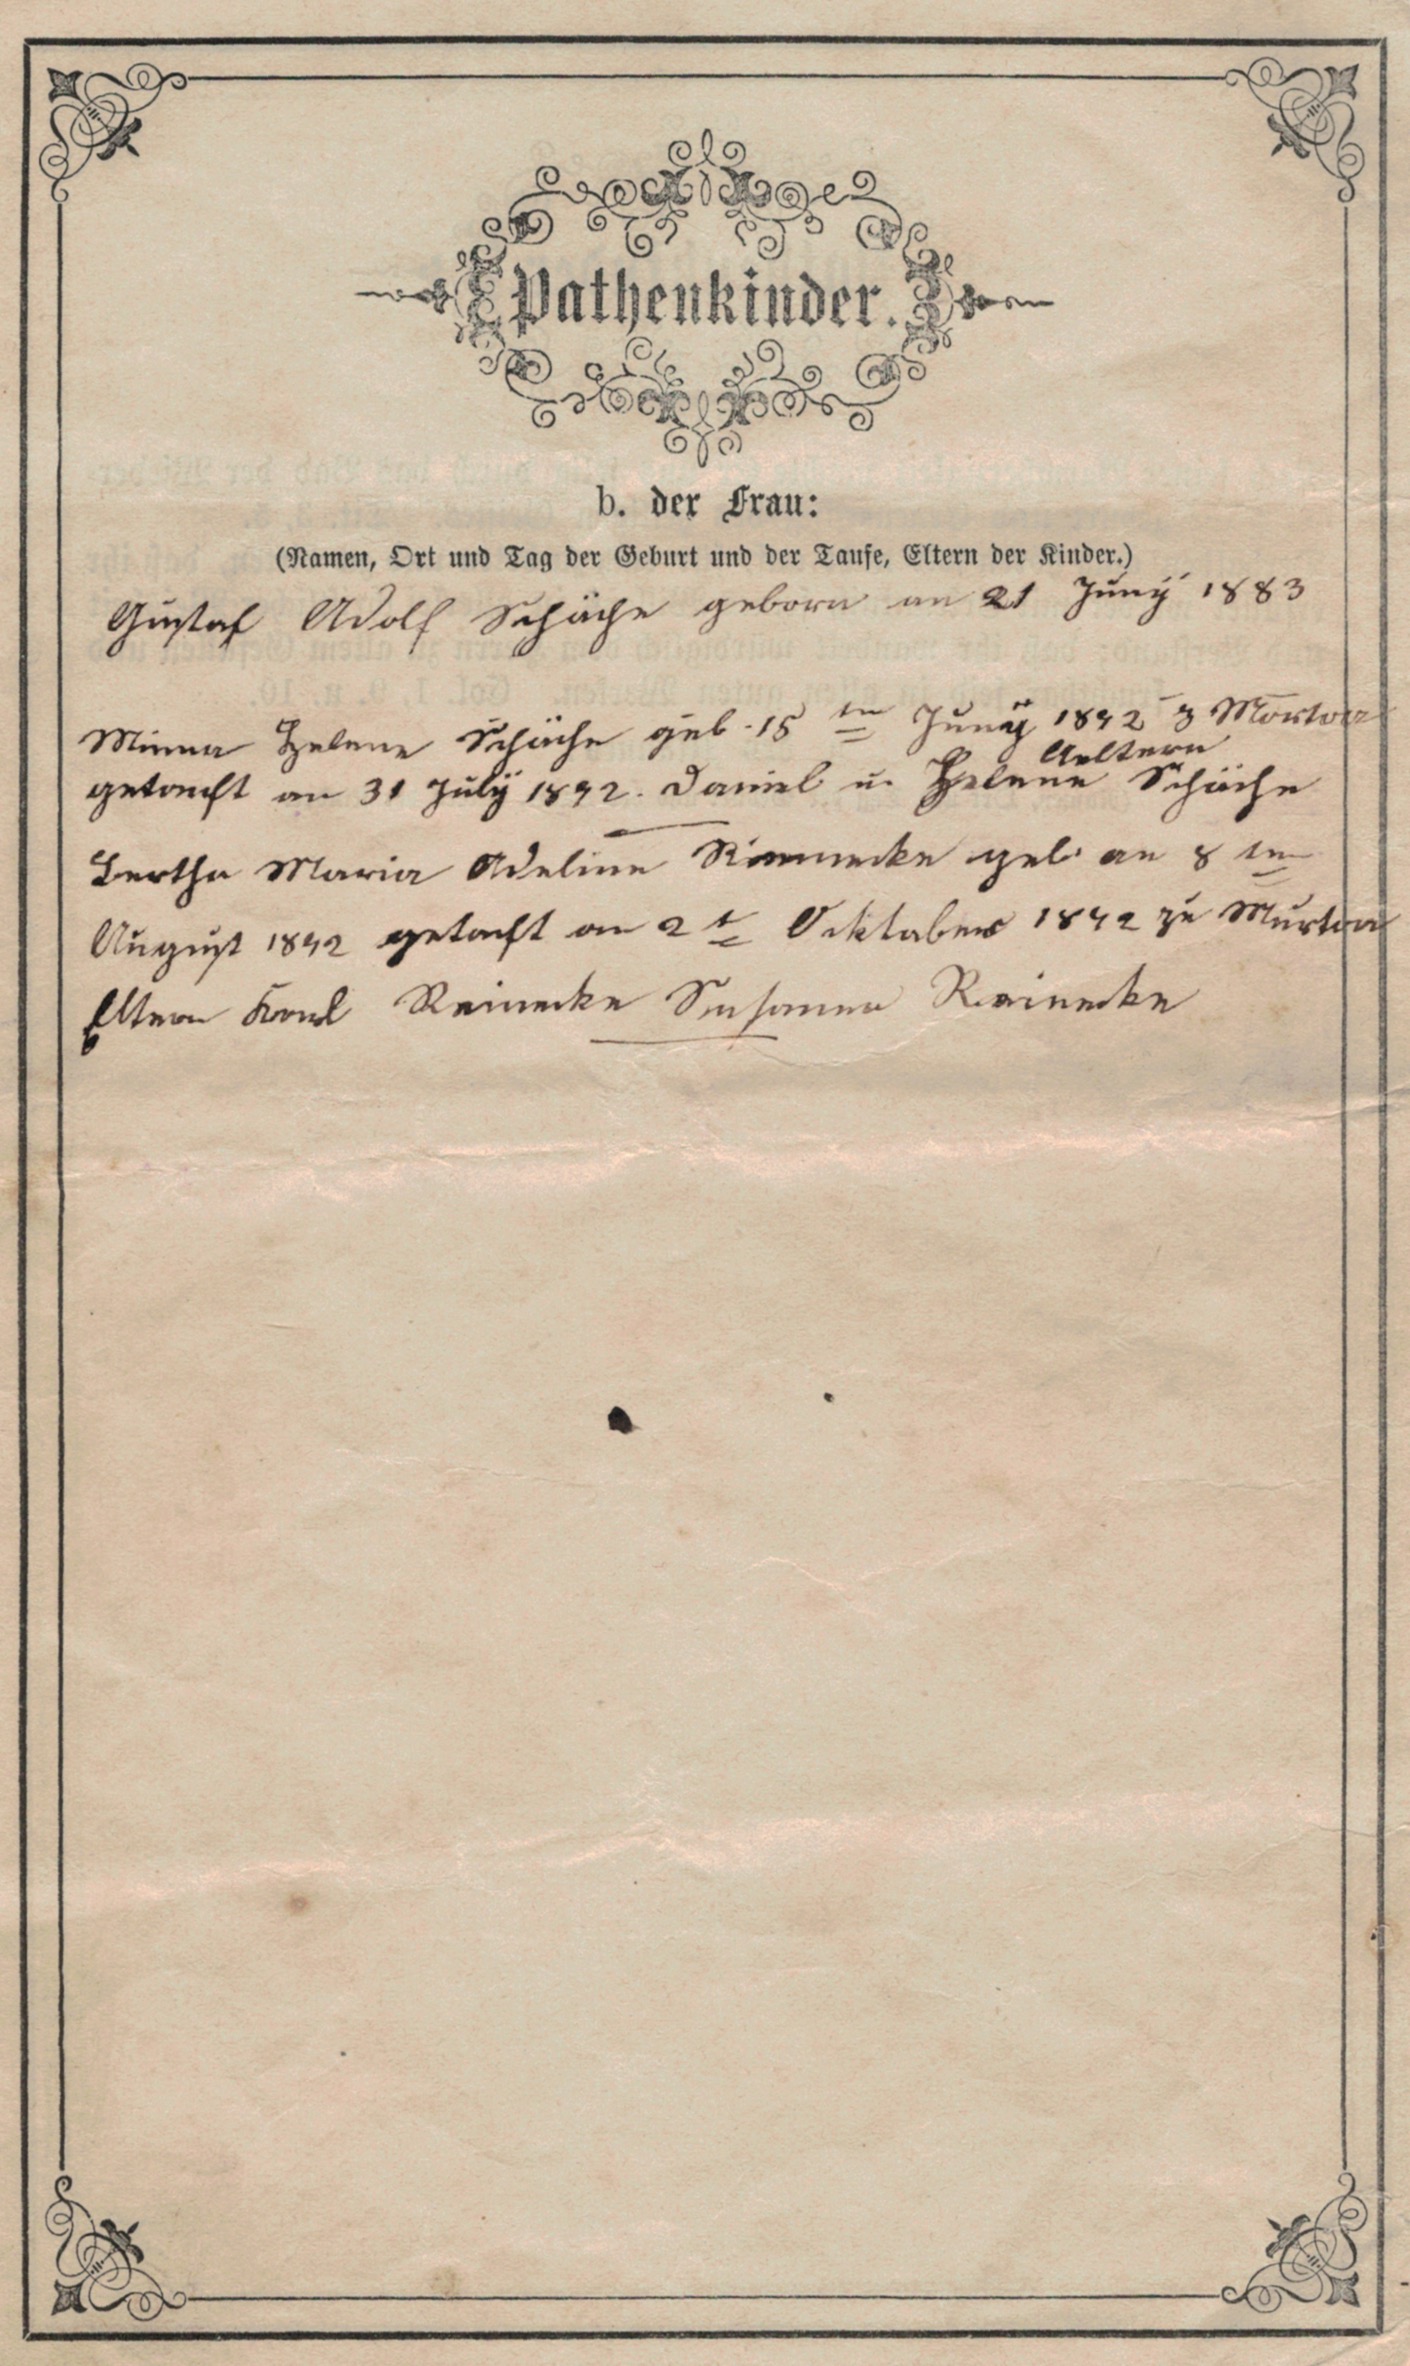 Pathenkinder.
b. der Frau:
(Namen, Ort und Tag der Geburt und der Taufe, Eltern der Kinder.)
Gustaf Adolf Schäche geborn an 21 Juny 1883
Minna Helene Schäche geb. 15 ten Juny 1892 z Mortoa
Aeltern
getauft an 31 July 1892. Daniel u. Helene Schäche
Bertha Maria Adeline geb. an 8 ten
August 1892 getauft an 2 t Ocktober 1892 zu Murtoa
Eltern Reinecke Susanna Reinecke